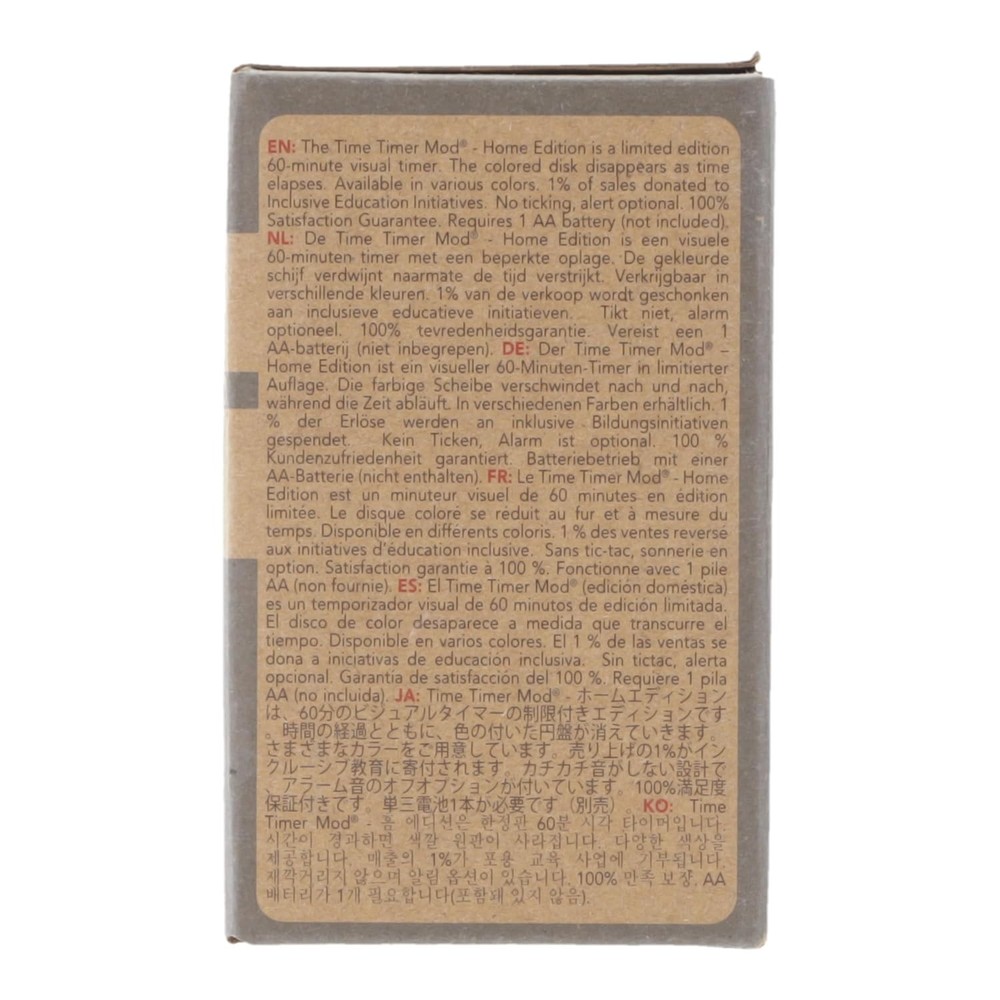 EN: The Time Timer Mod® - Home Edition is a limited edition
60-minute visual timer. The colored disk disappears as time
elapses. Available in various colors. 1% of sales donated to
Inclusive Education Initiatives. No ticking, alert optional. 100%
Satisfaction Guarantee. Requires 1 AA battery (not included).
NL: De Time Timer Mod® - Home Edition is een visuele
60-minuten timer met een beperkte oplage. De gekleurde
schijf verdwijnt naarmate de tijd verstrijkt. Verkrijgbaar in
verschillende kleuren. 1% van de verkoop wordt geschonken
aan inclusieve educatieve initiatieven. Tikt niet, alarm
optioneel. 100% tevredenheidsgarantie. Vereist een 1
AA-batterij (niet inbegrepen). DE: Der Time Timer Mod® –
Home Edition ist ein visueller 60-Minuten-Timer in limitierter
Auflage. Die farbige Scheibe verschwindet nach und nach,
während die Zeit abläuft. In verschiedenen Farben erhältlich. 1
% der Erlöse werden an inklusive Bildungsinitiativen
gespendet. Kein Ticken, Alarm ist optional. 100 %
Kundenzufriedenheit garantiert. Batteriebetrieb mit einer
AA-Batterie (nicht enthalten). FR: Le Time Timer Mod® - Home
Edition est un minuteur visuel de 60 minutes en édition
limitée. Le disque coloré se réduit au fur et à mesure du
temps. Disponible en différents coloris. 1 % des ventes reversé
aux initiatives d'éducation inclusive. Sans tic-tac, sonnerie en
option. Satisfaction garantie à 100 %. Fonctionne avec 1 pile
AA (non fournie). ES: El Time Timer Mod® (edición doméstica)
es un temporizador visual de 60 minutos de edición limitada.
El disco de color desaparece a medida que transcurre el
tiempo. Disponible en varios colores. El 1 % de las ventas se
dona a iniciativas de educación inclusiva. Sin tictac, alerta
opcional. Garantía de satisfacción del 100 %. Requiere 1 pila
AA (no incluida). JA: Time Timer Mod® - ホームエディション
は、60分のビジュアルタイマーの制限付きエディションです
。時間の経過とともに、色の付いた円盤が消えていきます。
さまざまなカラーをご用意しています。売り上げの1%がイン
クルーシブ教育に寄付されます。カチカチ音がしない設計で
、アラーム音のオフオプションが付いています。100%満足度
保証付きです。単三電池1本が必要です（別売）。KO: Time
Timer Mod® - 홈 에디션은 한정판 60분 시각 타이머입니다.
시간이 경과하면 색깔 원판이 사라집니다. 다양한 색상을
제공합니다. 매출의 1%가 포용 교육 사업에 기부됩니다.
재깍거리지 않으며 알림 옵션이 있습니다. 100% 만족 보장. AA
배터리가 1개 필요합니다(포함돼 있지 않음).